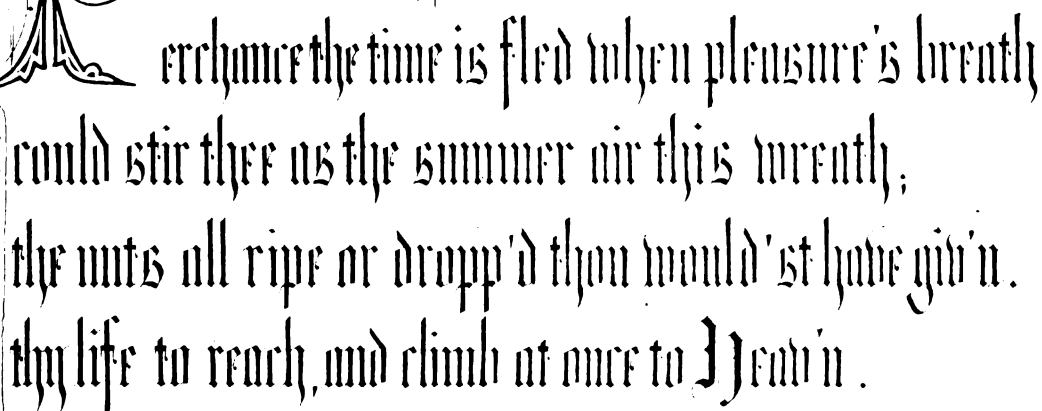 Perchance the time is fled when pleasure's breath
could stir thee as the summer air this wreath;
the nuts all ripe or dropp'd thou would'st have giv'n.
thy life to reach, and climb at once to Heav'n.